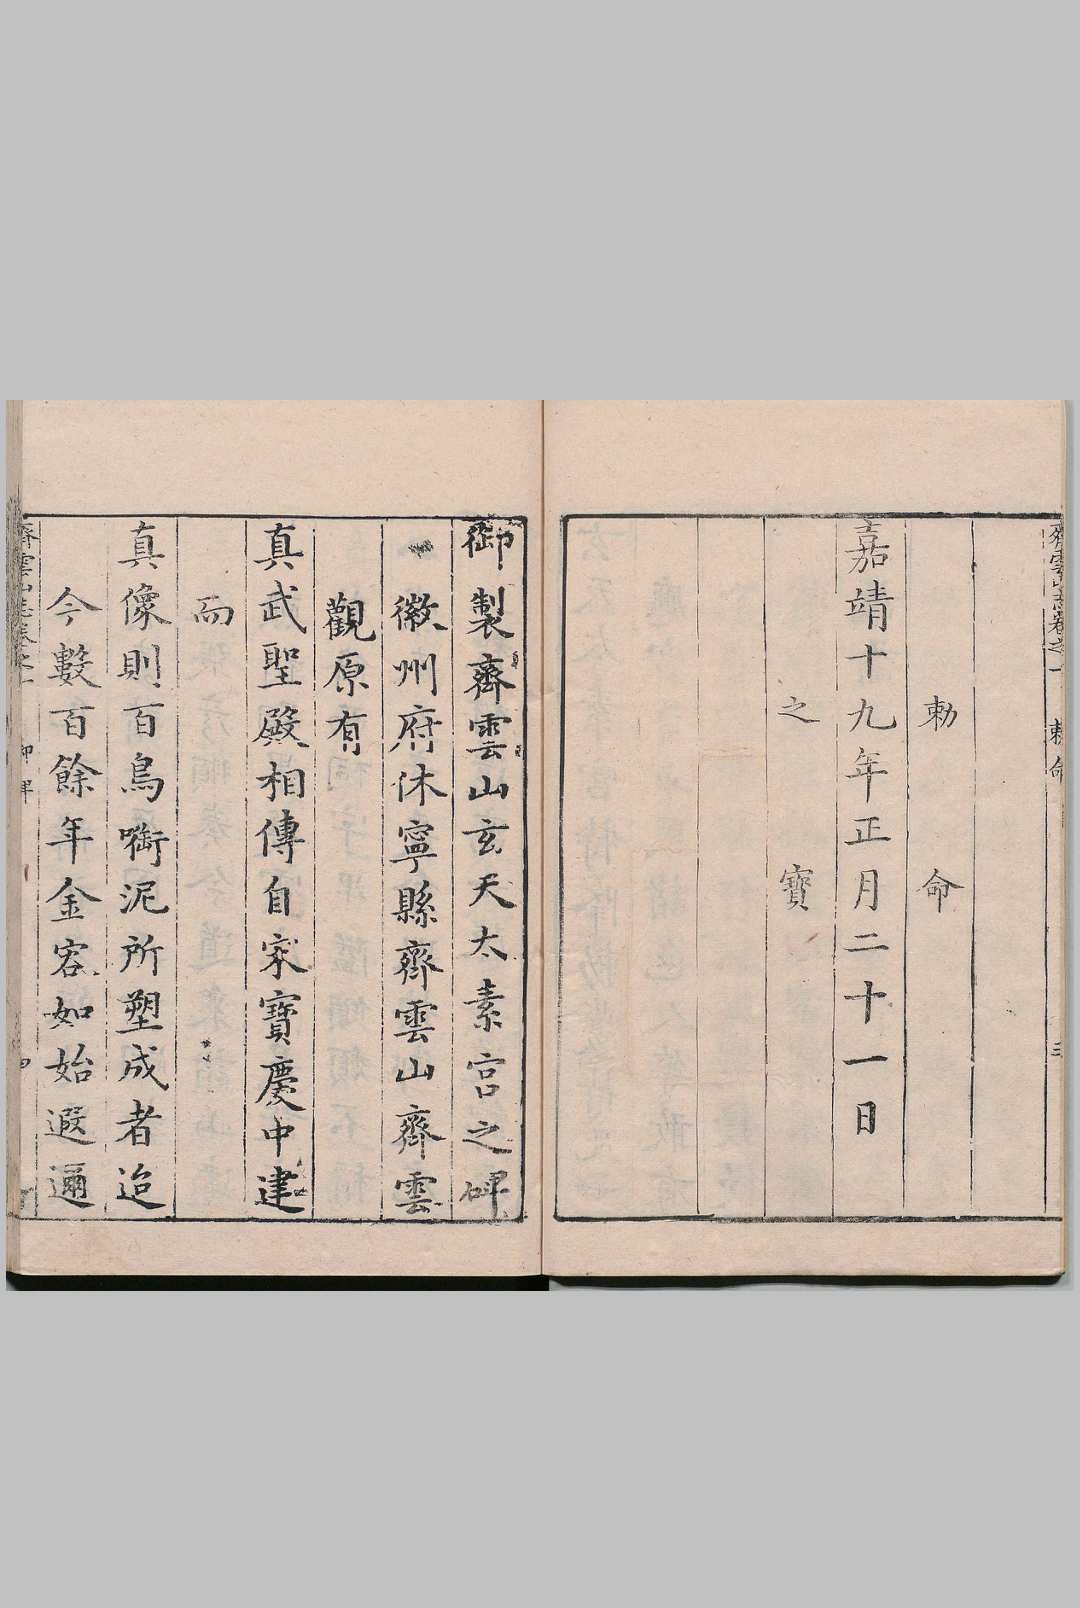 齊雲山志卷之一 敕命 三
勅 命
嘉靖十九年正月二十一日
之 寶
御製齊雲山玄天太素宮之碑
徽州府休寧縣齊雲山齊雲
觀原有
真武聖殿相傳自宋寶慶中建
而
真像則百鳥啣泥所塑成者迨
今數百餘年金容如始遐邇
齊雲山志卷之一 御碑 四